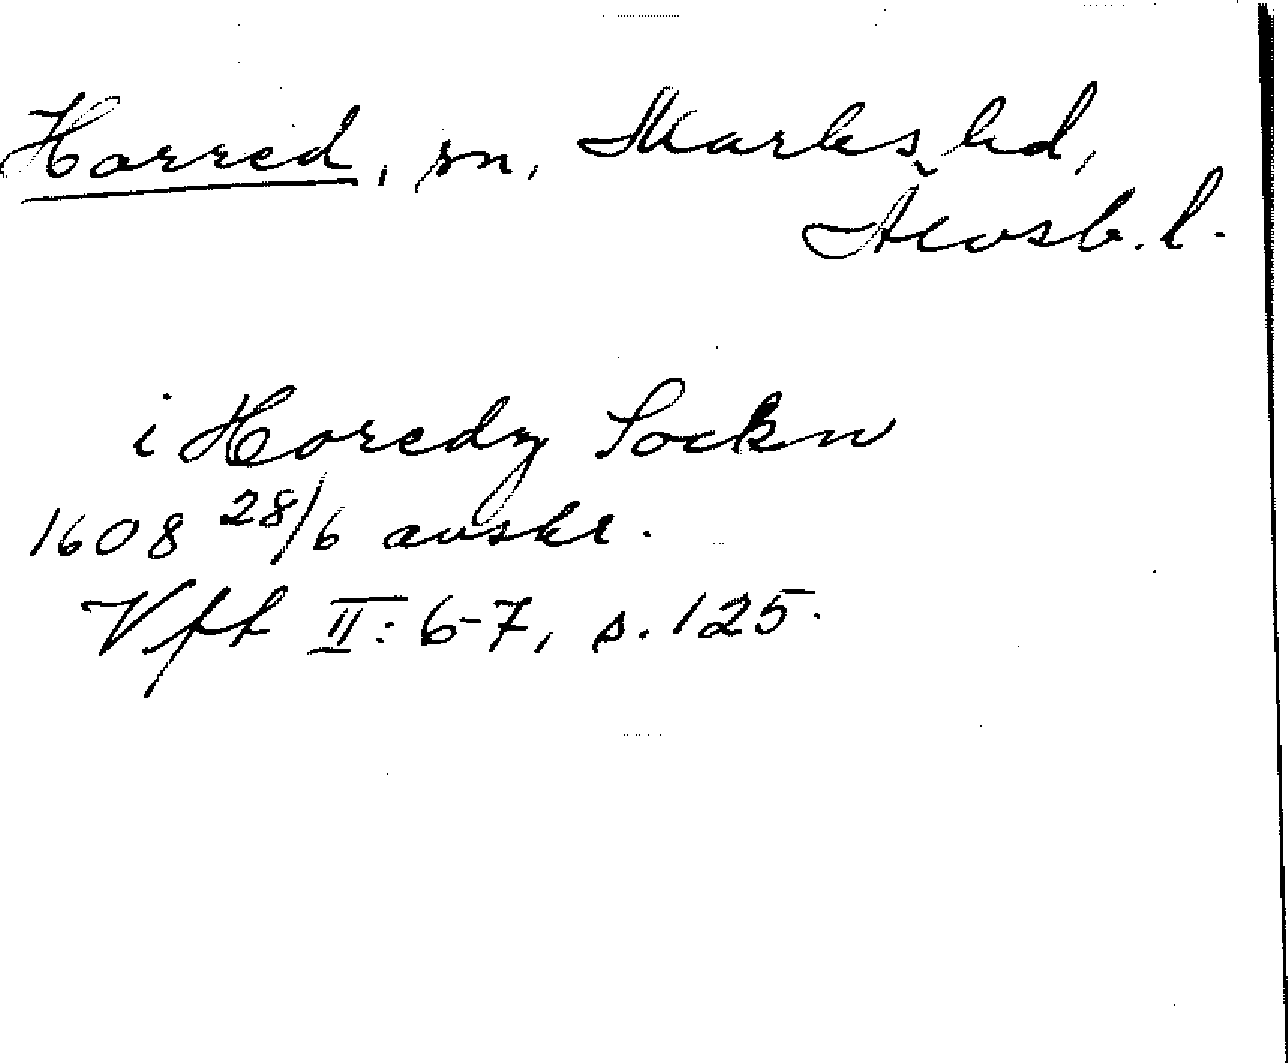 Horred, sn, Marks hd,
Älvsb. l.
i Horedz Sockn
1608 28/6 avskr.
Vff II: 6-7, s. 125.